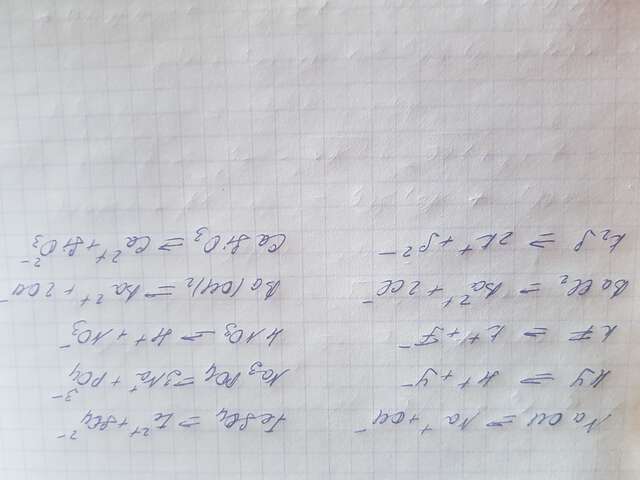 NaOH = Na⁺ + OH⁻
HJ = H⁺ + J⁻
KF = K⁺ + F⁻
BaCl₂ = Ba²⁺ + 2Cl⁻
K₂S = 2K⁺ + S²⁻
FeSO₄ = Fe²⁺ + SO₄²⁻
Na₃PO₄ = 3Na⁺ + PO₄³⁻
HNO₃ = H⁺ + NO₃⁻
Ba(OH)₂ = Ba²⁺ + 2OH⁻
CaSiO₃ = Ca²⁺ + SiO₃²⁻